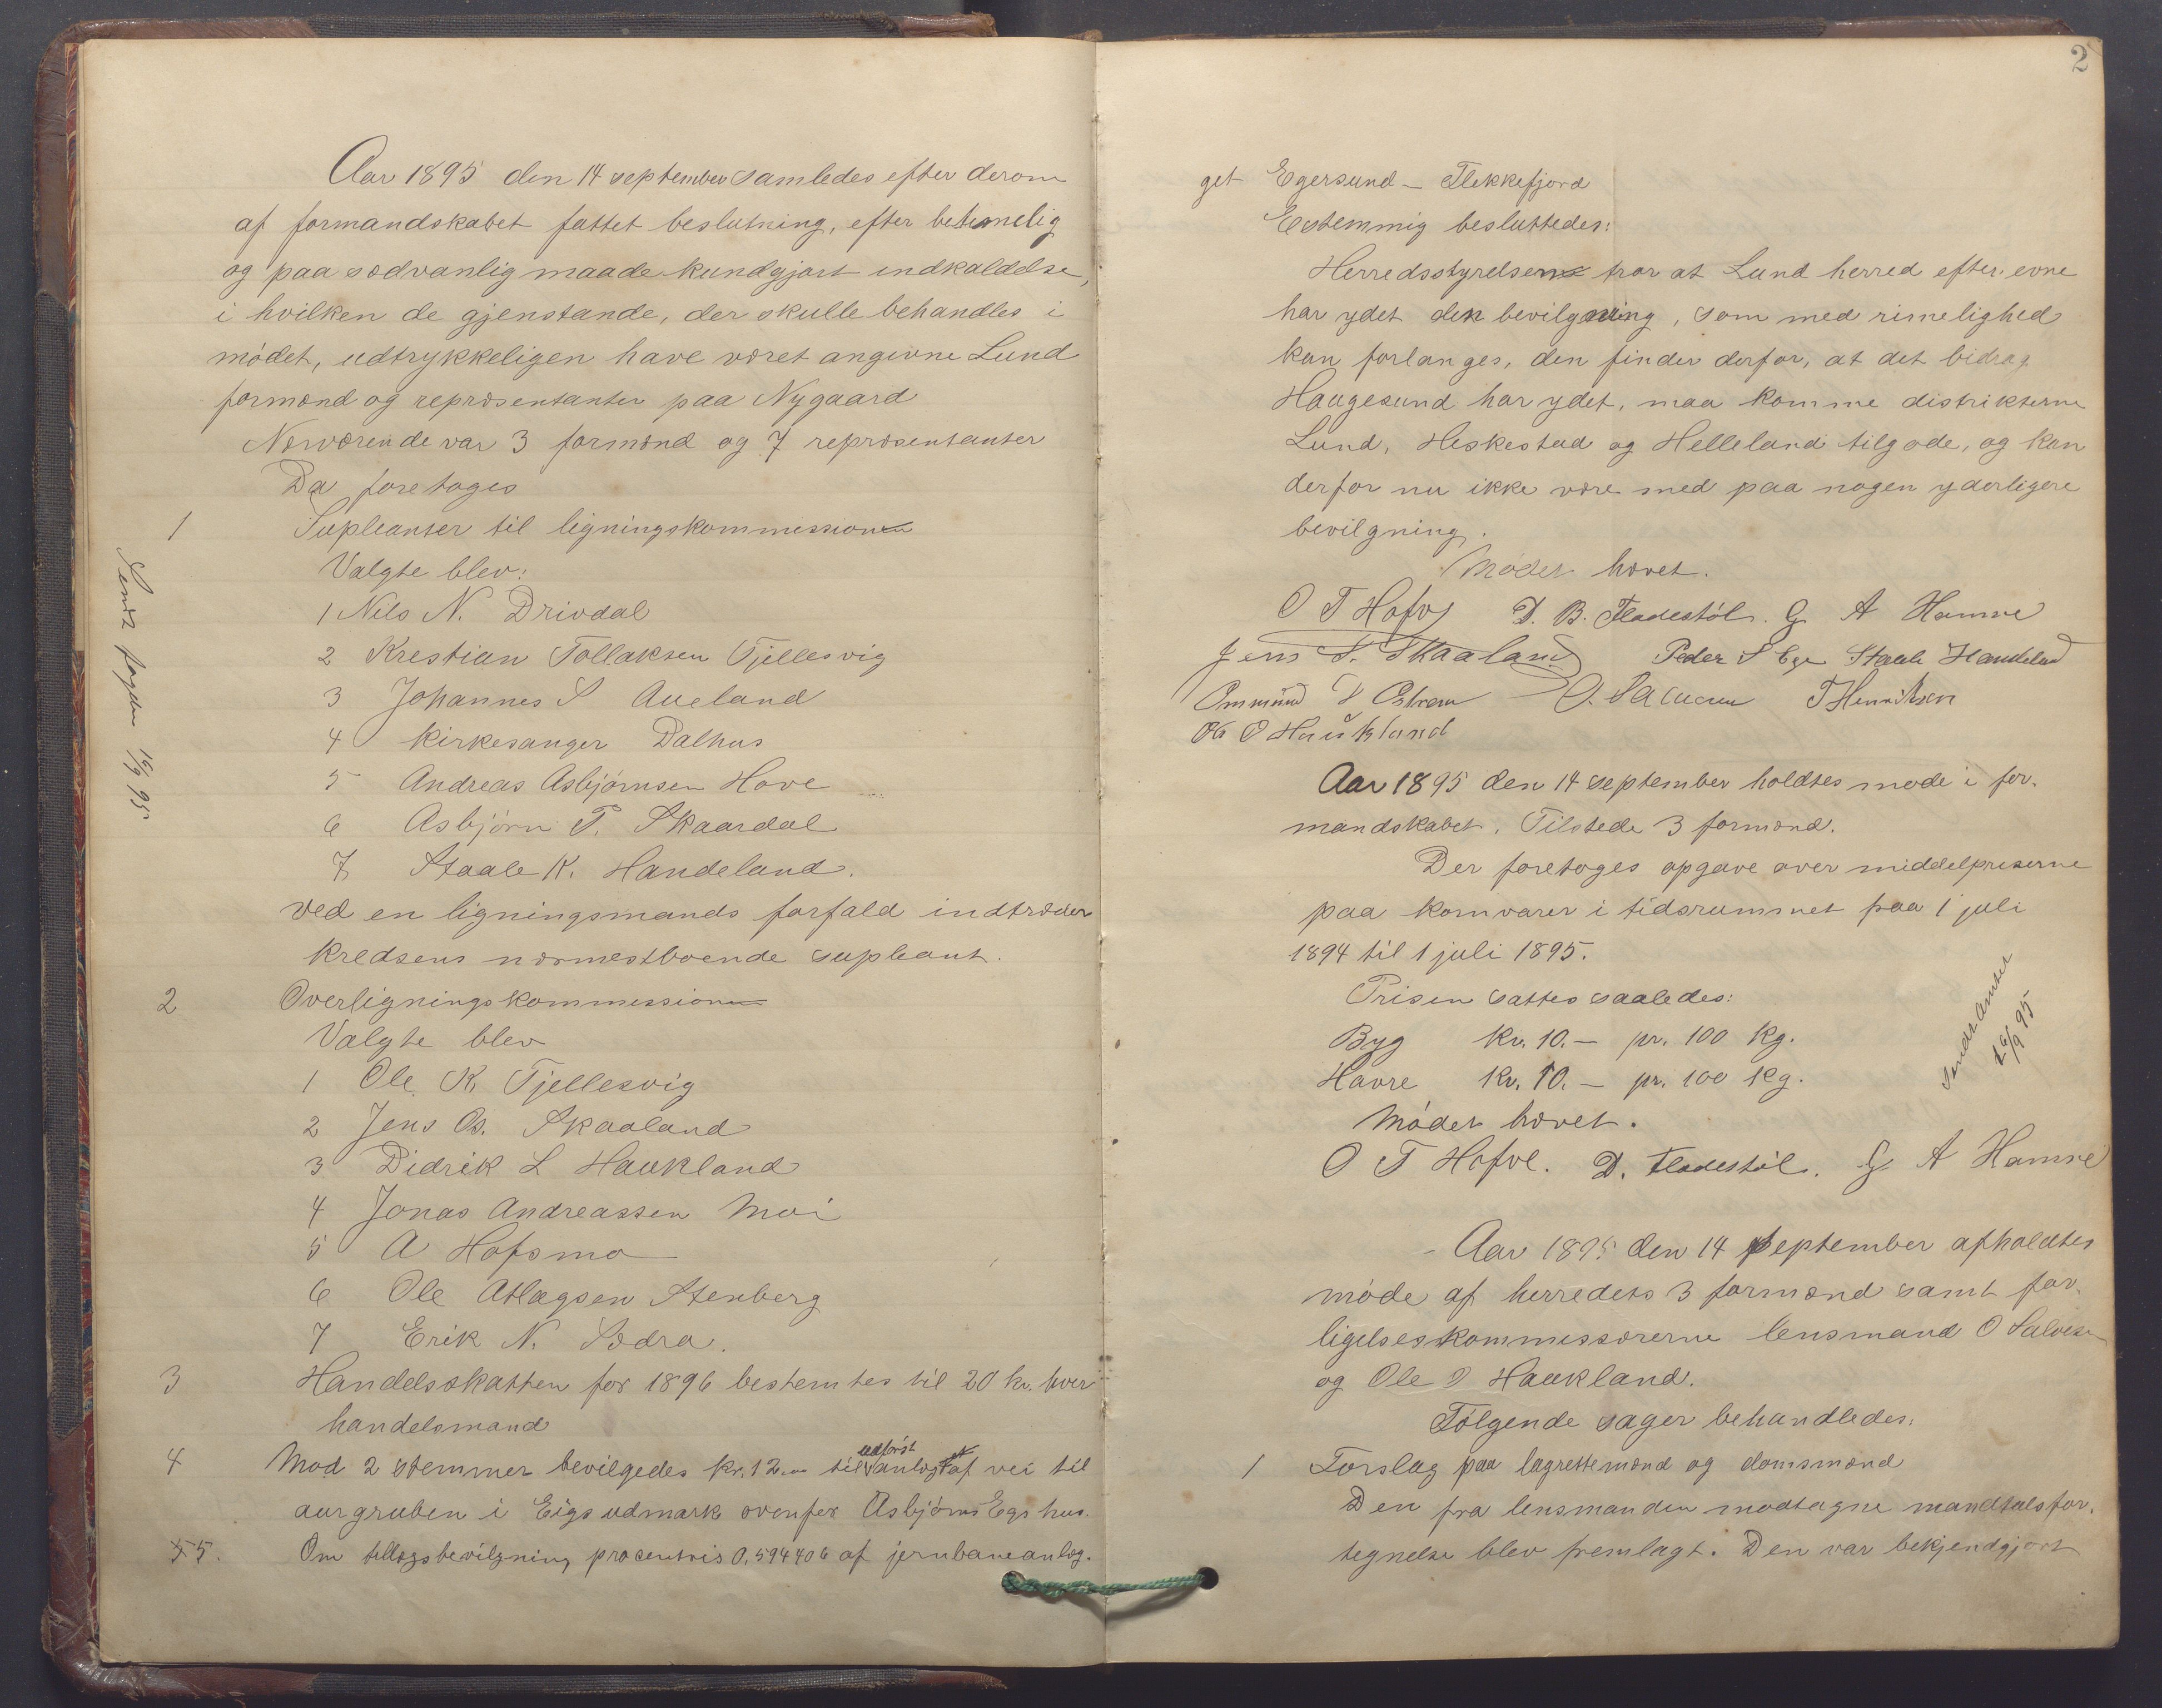 Aar 1895 den 14 september samledes efter derom
af formandskabet fattet beslutning, efter betimelig
og paa sædvanlig maade kundgjort indkaldelse,
i hvilken de gjenstande, der skulle behandles i
mödet, udtrykkeligen have været angivne Lund
formænd og repræsentanter paa Nygaard
Nærværende var 3 formænd og 7 repræsentanter
Da foretoges
1 Supleanter til ligningskommissionen
Valgte blev:
1 Nils N. Drivdal
2 Krestian Tollaksen Tjellesvig
3 Johannes S Aueland
4 Kirkesanger Dalhus
5 Andreas Asbjörnsen Hove
6 Asbjörn P. Skaardal
7 Staale K. Handeland.
ved en ligningsmands forfald indtræder
kredsens nærmestboende supleant.
2 Overligningskommissionen
Valgte blev
1 Ole K. Tjellesvig
2 Jens Os. Skaaland
3 Didrik L Haukland
4 Jonas Andreassen Moi
5 A Hofsmo
6 Ole Atlagsen Stenberg
7 Erik N. Sædra.
3 Handelsskatten for 1896 bestemtes til 20 kr. hver
handelsmand
4 Mod 2 stemmer bevilgedes kr. 12.00 til udfört anlæg af vei til
aurgruben i Eigs udmark ovenfor Asbjörns Egs hus.
5. Om tillægsbevilgning procentvis 0,594406 af jernbaneanlæg-
Sendt fogden 16/9 95
2
get Egersund - Flekkefjord
Enstemmig besluttedes:
Herredsstyrelsen tror at Lund herred efter evne
har ydet den bevilgning, som med rimelighed
kan forlanges, den finder derfor, at det bidrag
Haugesund har ydet, maa komme distrikterne
Lund, Heskestad og Helleland tilgode, og kan
derfor nu ikke være med paa nogen yderligere
bevilgning.
Mödet hævet.
O T Hofve D. B. Fladestöl. G A Hamre
Jens S. Skaaland Peder S Ege Staale Handeland
Ommund O. Salvesen T Henriksen
Ole O Haukland
Aar 1895 den 14 september holdtes möde i for-
mandskabet. Tilstede 3 formænd.
Der foretoges opgave over middelpriserne
paa kornvarer i tidsrummet fra 1 juli
1894 til 1 juli 1895.
Prisen sattes saaledes:
Byg Kr. 10.— pr. 100 Kg.
Havre Kr. 10.— pr. 100 Kg.
Mödet hævet.
Sendt Amtet
16/9 95
O T Hofve. D. Fladestöl. G A Hamre
Aar 1895 den 14 september afholdtes
möde af herredets 3 formænd samt for-
ligelseskommissærerne lensmand O Salvesen
og Ole O Haukland.
Fölgende sager behandledes:
1 Forslag paa lagrettemænd og domsmænd
Den fra lensmanden modtagne mandtalsfor-
tegnelse blev fremlagt. Den var bekjendgjort